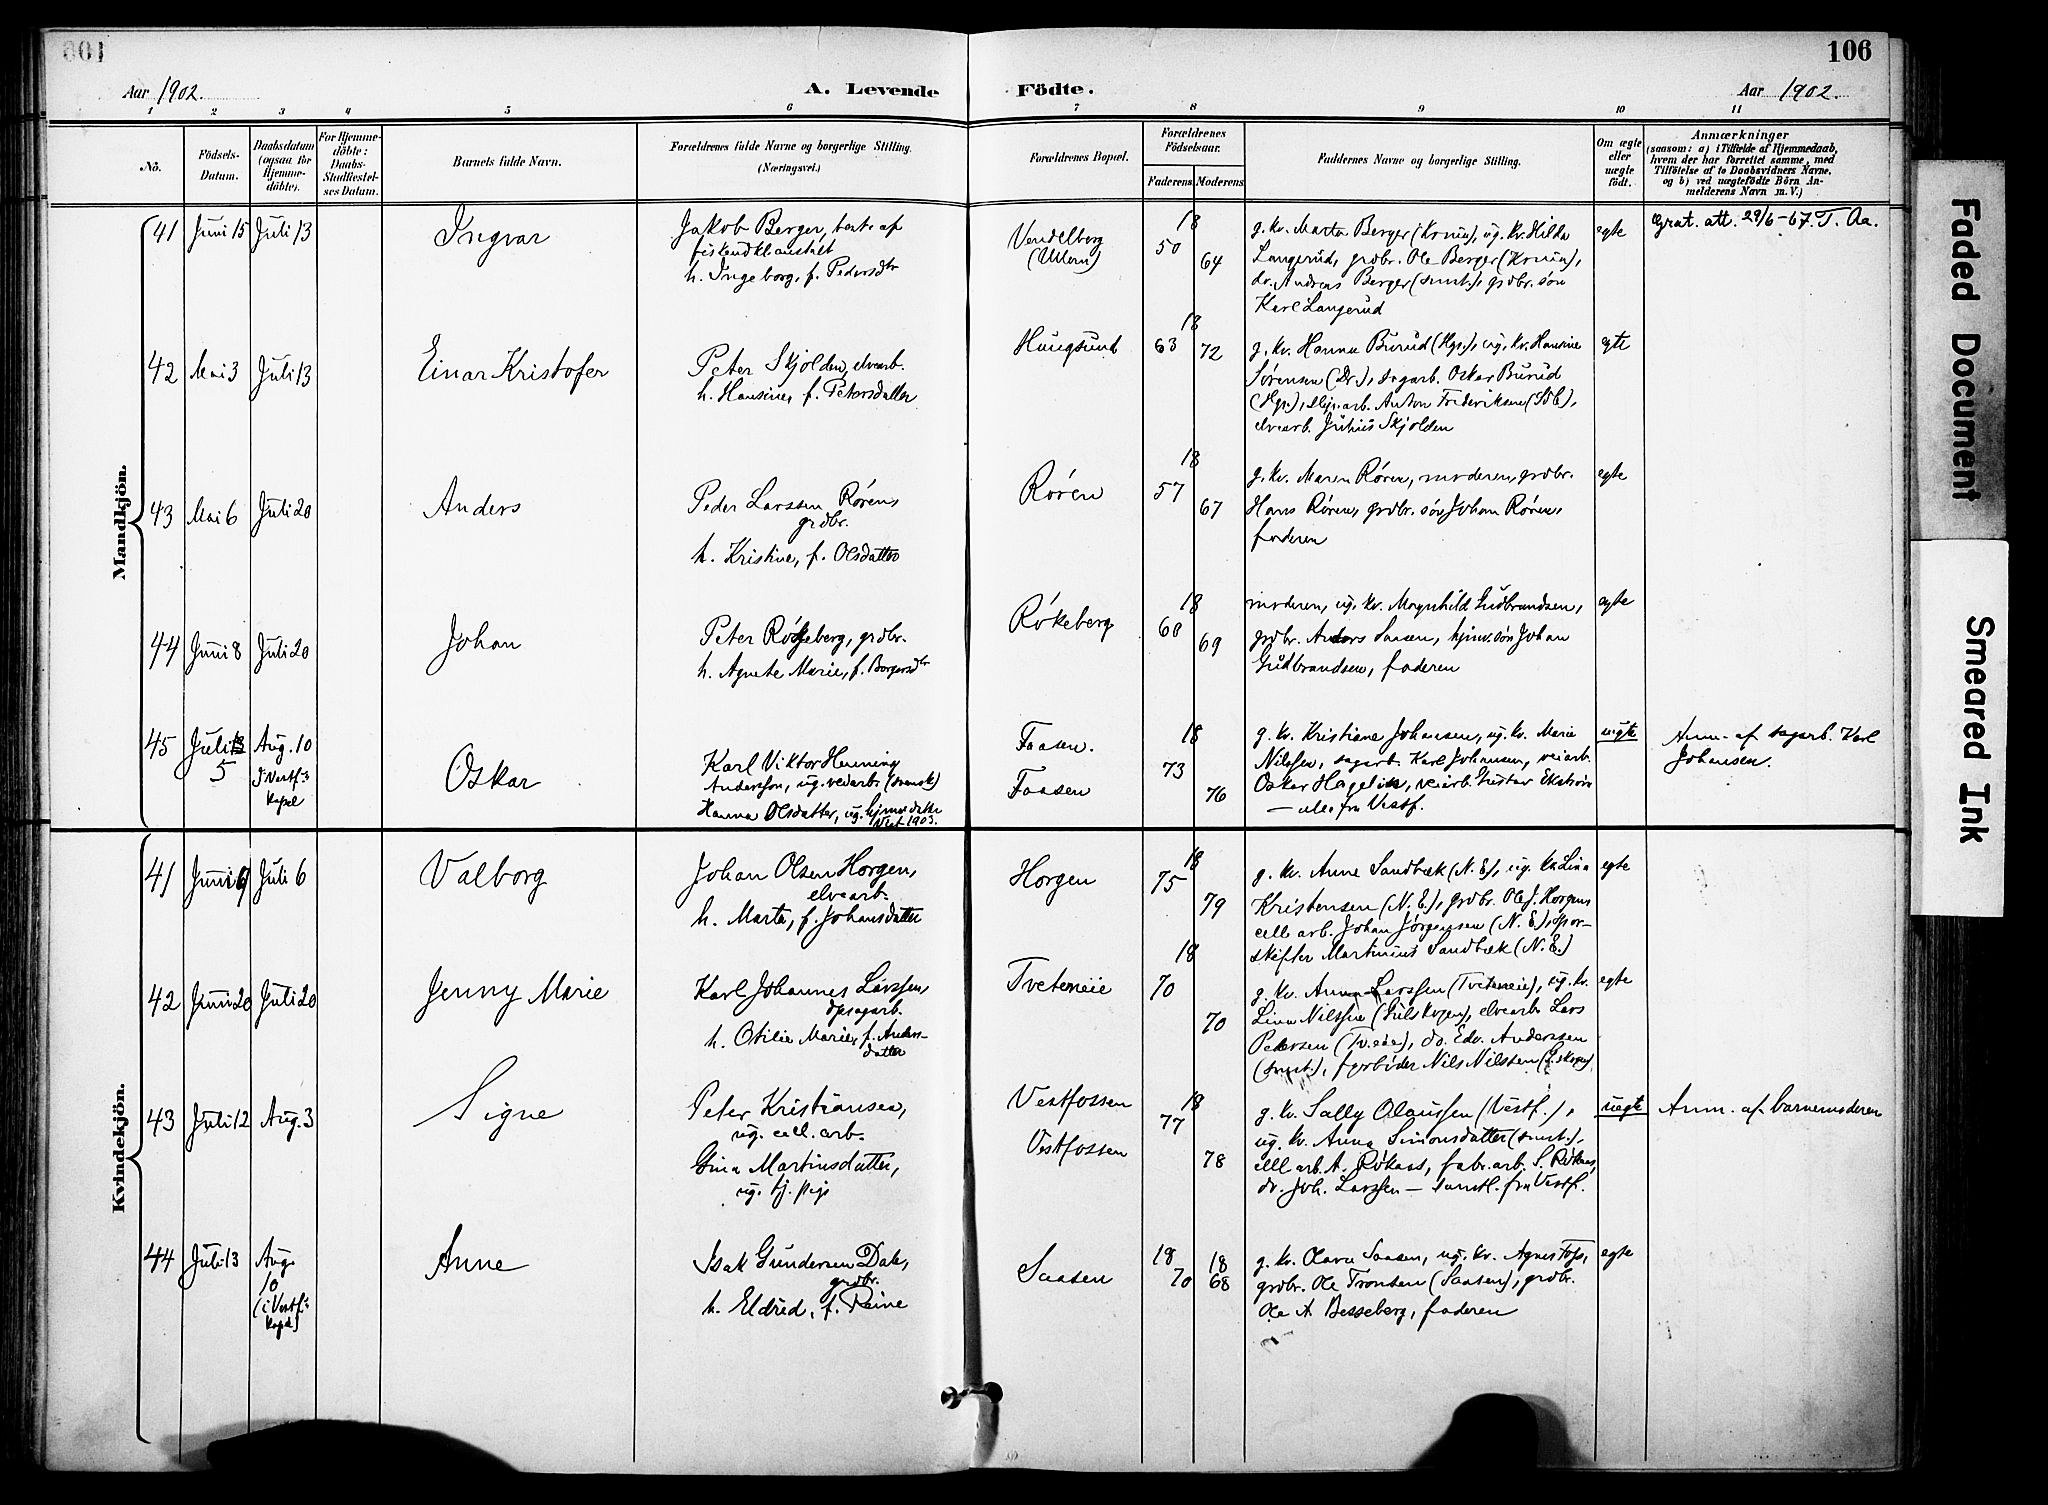 106
Aar 1902.
A. Levende Födte.
Aar 1902.
1 2 3 4 5 6 7 8 9 10 11
No.
Födsels-Datum.
Daabsdatum (ogsaa for Hjemme-döbte).
For Hjemme-döbte: Daabs-Stadfæstel-ses Datum.
Barnets fulde Navn.
Forældrenes fulde Navne og borgerlige Stilling.
(Næringsvei.)
Forældrenes Bopæl.
Forældrenes Födselsaar.
Faderens Moderens
Faddernes Navne og borgerlige Stilling.
Om ægte eller uægte født.
Anmærkninger
(saasom: a) i Tilfælde af Hjemmedaab,
hvem der har forrettet samme, med
Tilföielse af to Daabsvidners Navne,
og b) ved uægtefödte Börn An-
melderens Navn m. V.)
Mandkjön.
41 Juni 15 Juli 13
Ingvar
Jakob Berger, best. af
h. Ingeborg, f. Pedersdtr
Vendelborg
18 50 64
g. kv. Marta Berger, ug. kv. Hilda
Langerud, grdbr. Ole Berger
do. Andreas Berger (smst.), grdbr. søn
Karl Langerud
egte
Grat. att. 29/6-67. T. Aa.
42 Mai 3 Juli 13
Einar Kristofer
Peter Skjolden, elvearb.
h. Hansine, f. Petersdatter
Haugsund
18 63 72
g. kv. Hanna Burud (Hgs.), ug. kv. Hansine
Sørensen (Dr.), sagarb. Oskar Burud
(Hgs.), slip.arb. Anton Frederiksen
elvearb. Julius Skjolden
egte
43 Mai 6 Juli 20
Anders
Peder Larssen Røren,
grdbr.
h. Kristine, f. Olsdatter
Røren
18 57 67
g. kv. Maren Røren, moderen, grdbr.
Hans Røren, grdbr. søn Johan Røren,
faderen
egte
44 Juni 8 Juli 20
Johan
Peter Røkeberg, grdbr.
h. Agnete Marie, f. Borgersdtr
Røkeberg
18 60 69
moderen, ug. kv. Magnhild Gudbrandsen,
grdbr. Anders Saasen, hjmv. søn Johan
Gudbrandsen, faderen
egte
45 Juli 5 Aug. 10
i Vestf: kapel
Oskar
Karl Viktor Henning
Andersson, ug. veiarb. (svensk)
Hanna Olsdatter, ug. hjmv. datter
Faasen.
Faasen
18 73 76
g. kv. Kristiane Johansen, ug. kv. Marie
Nilssen, sagarb. Karl Johansen, veiarb.
Oskar Hagelin, veiarb. Gustav Ekstrøm
— alle fra Vestf.
uegte
Anm. af sagarb. Karl
Johansen.
Kvindekjön.
41 Juni Juli 6
Valborg
Johan Olsen Horgen,
elvearb.
h. Marta, f. Johansdatter
Horgen
18 75 79
g. kv. Anne Sandbæk (N. E.), ug. kv. Lina
Kristensen (N. E.), grdbr. Ole J. Horgen
cell. arb. Johan Jørgensen (N. E.), spor-
skifter Martinius Sandbæk (N. E.)
egte
42 Juni 20 Juli 20
Jenny Marie
Karl Johannes Larssen,
dpsagarb.
h. Otilie Marie, f. Anders-
datter
Tveteneie
18 70 70
g. kv. Anna Larssen (Tveteneie), ug. kv.
Lina Nilssen (Gulskogen), elvearb. Lars
Petersen (Tv.eie), do. Edv. Anderssen
(smst.), fyrbøder Nils Nilssen (G.skogen)
egte
43 Juli 12 Aug. 3
Signe
Peter Kristiansen,
ug. cell. arb.
Gina Martinsdatter,
ug. tj. pige
Vestfossen
Vestfossen
18 77 78
g. kv. Sally Olaussen (Vestf.),
ug. kv. Anna Simonsdatter (smst.),
cell arb. A. Røkaas, fabr. arb. S. Røkaas,
do. Joh. Larssen — samtl. fra Vestf.
uegte
Anm. af barnemoderen
44 Juli 13 Aug. 10
(i Vestf: kapel)
Anne
Isak Gundersen Dal,
grdbr.
h. Eldrid, f. Reine
Saasen
18 70 18 68
g. kv. Olava Saasen, ug. kv. Agnes Fos,
grdbr. Ole Tronsen (Saasen), grdbr.
Ole A. Besseberg, faderen
egte
Faded Document
Smeared Ink